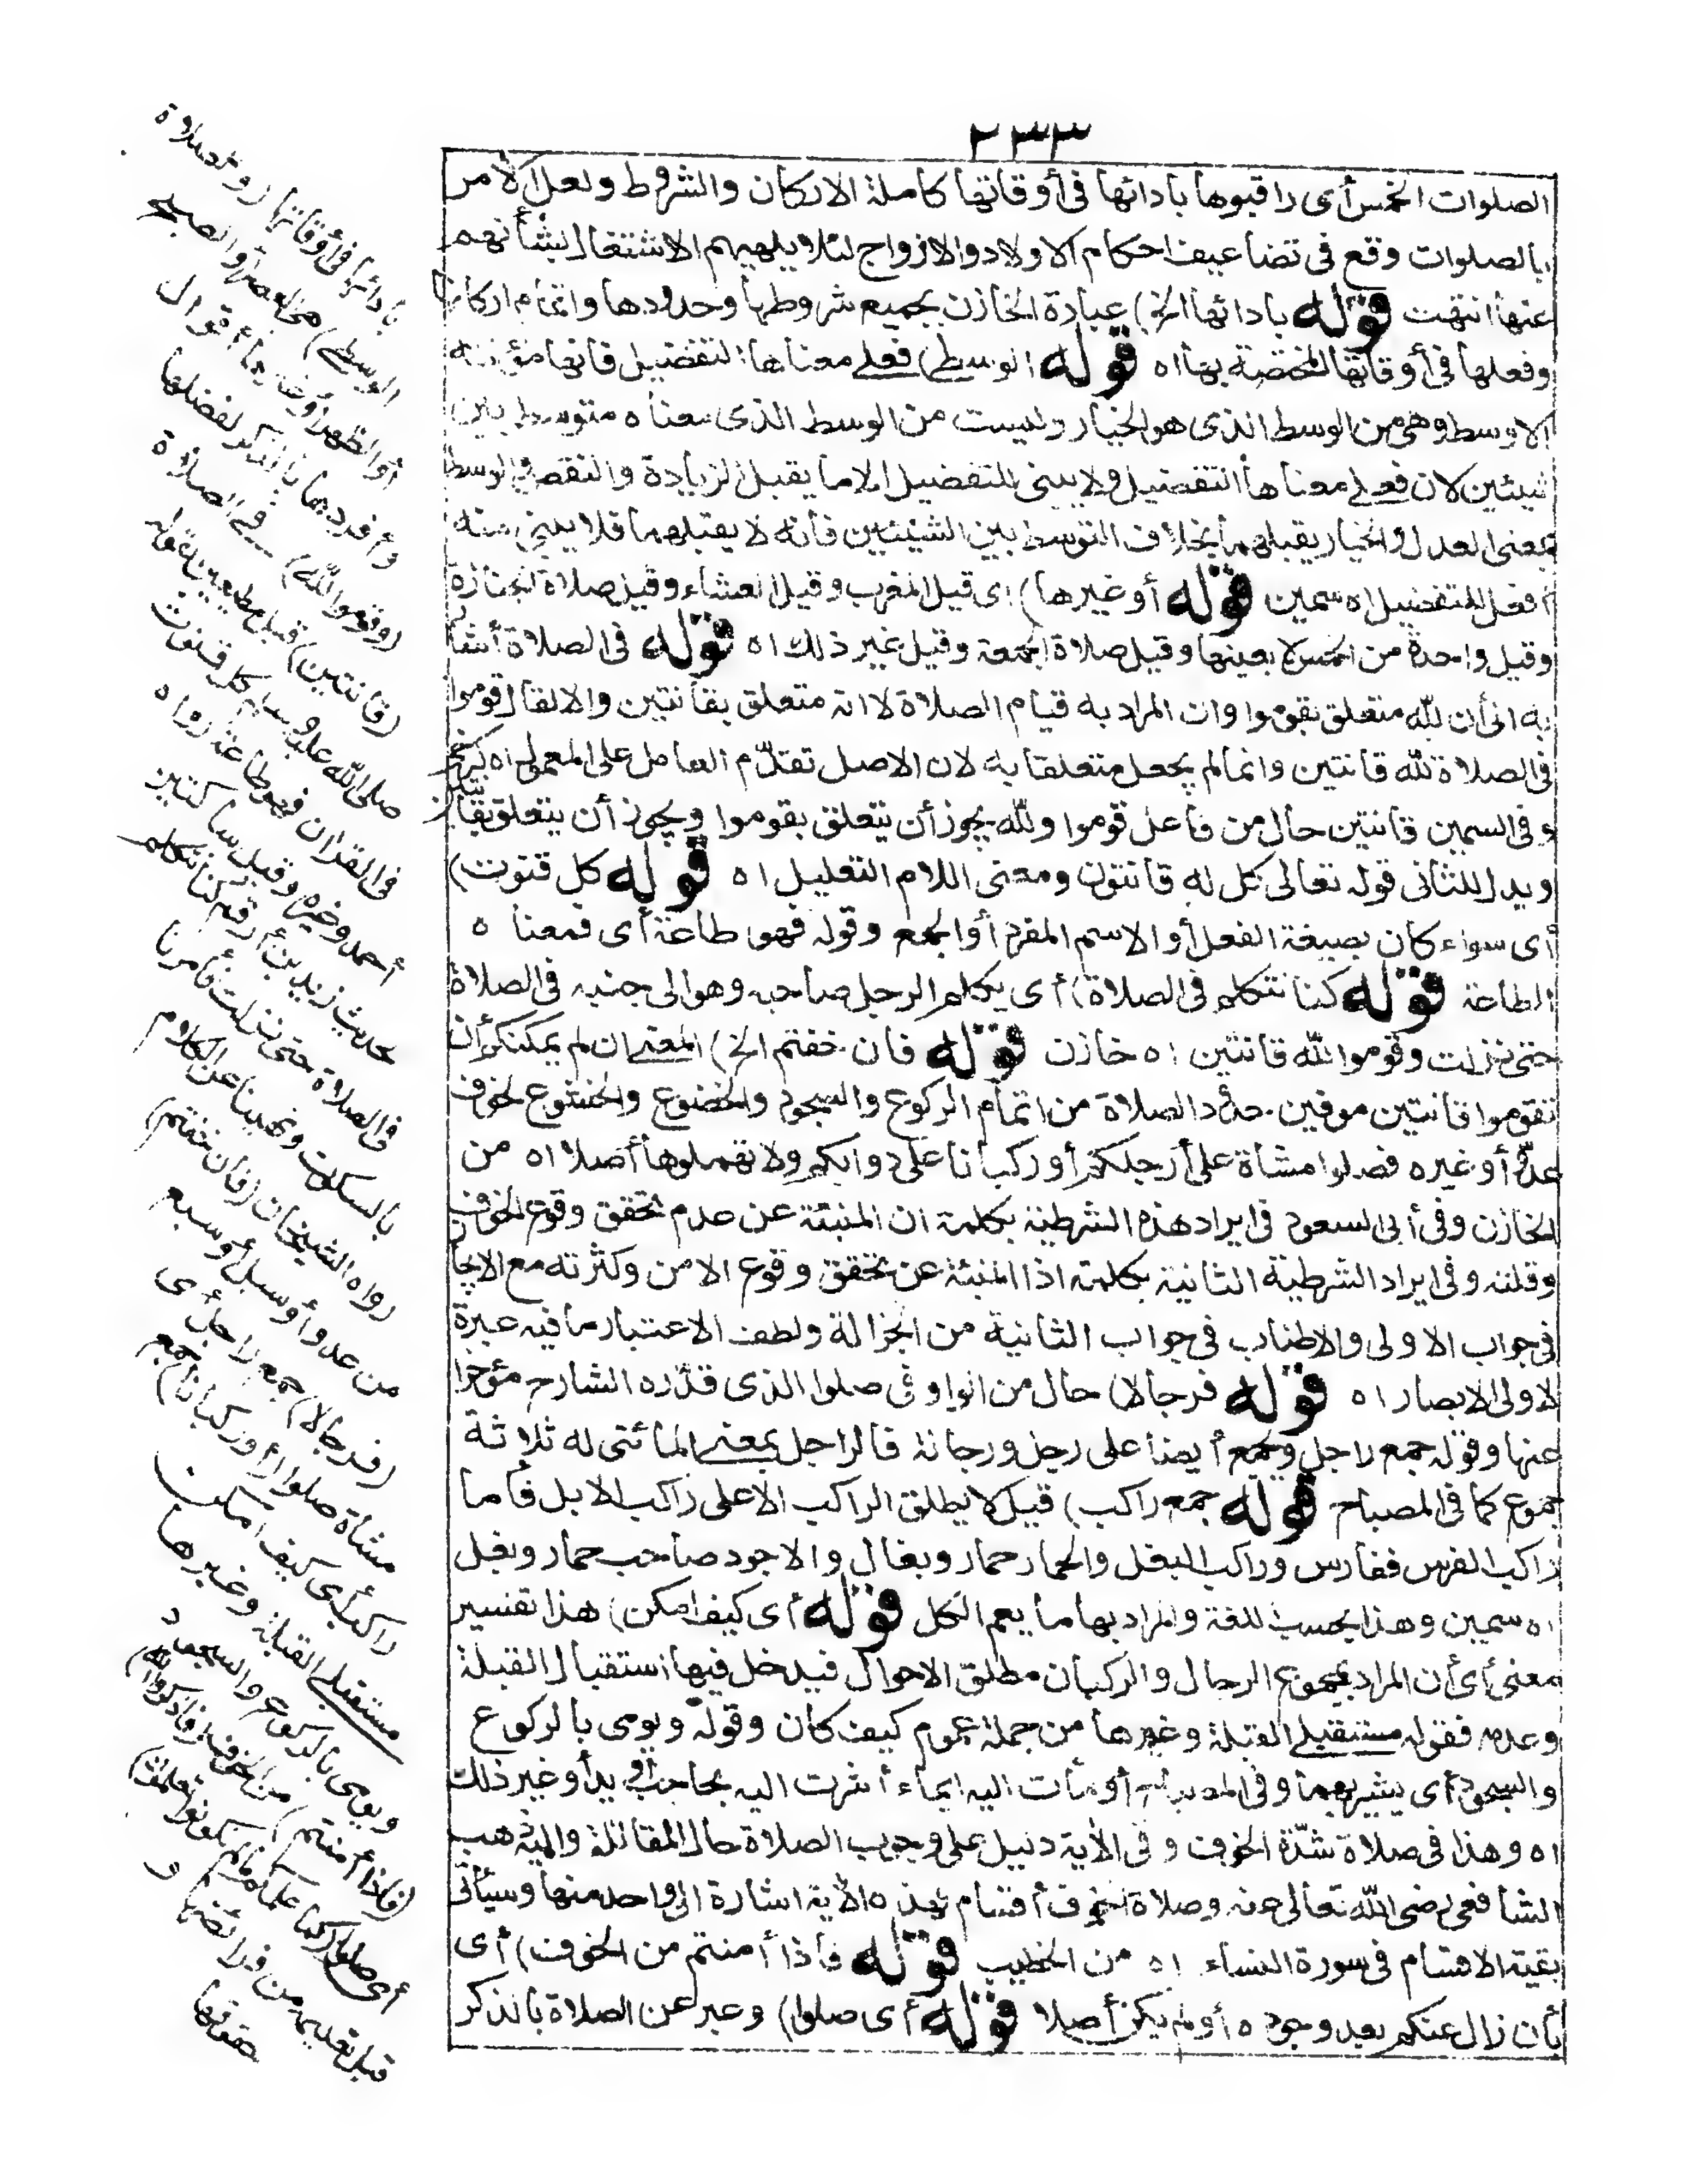 ٢٣٣
الصلوات الخمس أى راقبوها بادائها فى أوقاتها كاملة الاركان والشروط ولعل الأمر
بالصلوات وقع فى تضاعيف احكام الاولاد والازواج لئلا يلهيهم الاشتغال بشأنهم
عنها انتهت قوله بادائها الخ) عبارة الخازن بجميع شروطها وحدودها واتمام اركانها
وفعلها فى أوقاتها المختصة بها اه قوله الوسطى) فعلى معناها التفضيل فانها مؤنثة
الاوسط وهى من الوسط الذى هو الخيار وليست من الوسط الذى معناه متوسط بين
شيئين لان فعلى معناها التفضيل ولا يبنى للتفضيل الا ما يقبل الزيادة والنقص والوسط
بمعنى العدل والخيار يقبلهما بخلاف التوسط بين الشيئين فانه لا يقبلهما فلا يبنى منه
أفعل للتفضيل اه سمين قوله أو غيرها) اى قيل المغرب وقيل العشاء وقيل صلاة الجنازة
وقيل واحدة من الخمس لا بعينها وقيل صلاة الجمعة وقيل غير ذلك اه قوله فى الصلاة أشار
به الى أن لله متعلق بقوموا وان المراد به قيام الصلاة لا انه متعلق بقانتين والا لقال قوموا
فى الصلاة لله قانتين وانما لم يجعل متعلقا به لان الاصل تقدّم العامل على المعمول اه كرخى
وفى السمين قانتين حال من فاعل قوموا ولله يجوز أن يتعلق بقوموا ويجوز أن يتعلق بقانتين
ويدل للثانى قوله تعالى كل له قانتون ومعنى اللام التعليل اه قوله كل قنوت)
أى سواء كان بصيغة الفعل أو الاسم المفرد أو الجمع وقوله فهو طاعة أى فمعناه
الطاعة قوله كنا نتكلم فى الصلاة) أى يكلم الرجل صاحبه وهو الى جنبه فى الصلاة
حتى نزلت وقوموا لله قانتين اه خازن قوله فان خفتم الخ) المعنى ان لم يمكنكم أن
تقوموا قانتين موفين حدود الصلاة من اتمام الركوع والسجود والخضوع والخشوع لخوف
عدوّ أو غيره فصلوا مشاة على أرجلكم أو ركبانا على دوابكم ولا تهملوها أصلا اه من
الخازن وفى أبى السعود فى ايراد هذه الشرطية بكلمة ان المنبئة عن عدم تحقق وقوع الخوف
وقلته وفى ايراد الشرطية الثانية بكلمة اذا المنبئة عن تحقق وقوع الامن وكثرته مع الايجاز
فى جواب الاولى والاطناب فى جواب الثانية من الجزالة ولطف الاعتبار ما فيه عبرة
لاولى الابصار اه قوله فرجالا) حال من الواو فى صلوا الذى قدّره الشارح مؤخرا
عنها وقوله جمع راجل ويجمع أيضا على رجل ورجالة فالراجل بمعنى الماشى له ثلاثة
جموع كما فى المصباح قوله جمع راكب) قيل لا يطلق الراكب الا على راكب الابل فأما
راكب الفرس ففارس وراكب البغل والحمار حمار وبغال والاجود صاحب حمار وبغل
اه سمين وهذا بحسب اللغة والمراد بها ما يعم الكل قوله أى كيف امكن) هذا تفسير
معنى أى أن المراد بمجموع الرجال والركبان مطلق الاحوال فيدخل فيها استقبال القبلة
وعدمه فقوله مستقبلى القبلة وغيرها من جملة عموم كيف كان وقوله ويومى بالركوع
والسجود أى يشير بهما وفى المصباح أومأت اليه ايماء أشرت اليه بحاجب أو يد أو غير ذلك
اه وهذا فى صلاة شدّة الخوف وفى الآية دليل على وجوب الصلاة حال المقاتلة واليه ذهب
الشافعى رضى الله تعالى عنه وصلاة الخوف أقسام بهذه الآية اشارة الى واحد منها وسيأتى
بقية الاقسام فى سورة النساء اه من الخطيب قوله فاذا أمنتم من الخوف) أى
بأن زال عنكم بعد وجوده أو لم يكن أصلا قوله أى صلوا) وعبر عن الصلاة بالذكر
بأدائها فى أوقاتها (والصلاة
الوسطى) هى العصر أو الصبح
أو الظهر أو غيرها أقوال
وأفردها بالذكر لفضلها
(وقوموا لله) فى الصلاة
(قانتين) قيل مطيعين لقوله
صلى الله عليه وسلم كل قنوت
فى القرآن فهو طاعة رواه
أحمد وغيره وقيل ساكتين
حديث زيد بن أرقم كنا نتكلم
فى الصلاة حتى نزلت فأمرنا
بالسكوت ونهينا عن الكلام
رواه الشيخان (فان خفتم)
من عدو أو سيل أو سبع
(فرجالا) جمع راجل أى
مشاة صلوا (أو ركبانا) جمع
راكب أى كيف أمكن
مستقبلى القبلة وغيرها
ويومى بالركوع والسجود
(فاذا أمنتم) من الخوف (فاذكروا الله)
أى صلوا (كما علمكم ما لم تكونوا تعلمون)
قبل تعليمه من فرائضها و
حقوقها